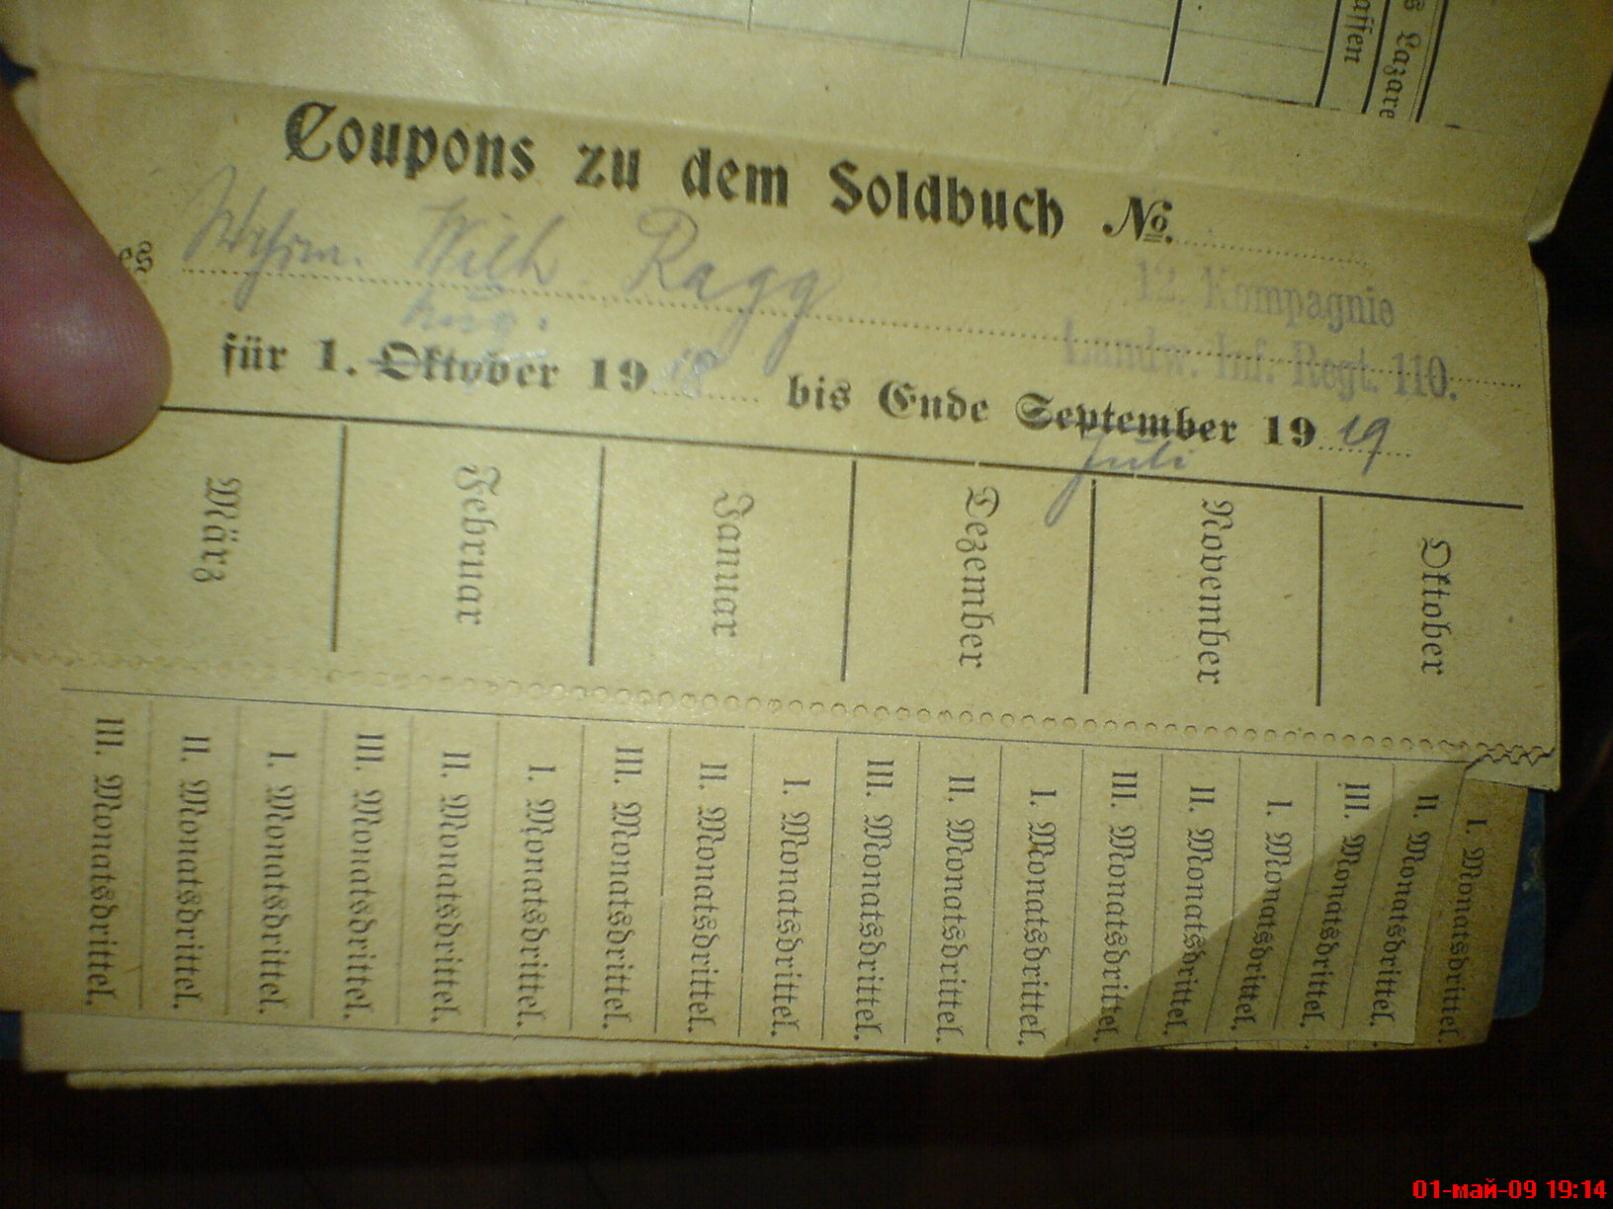 affen
s Lazare
Coupons zu dem Soldbuch №.
es Wehrm. Wilh Ragg
12. Kompagnie
Landw. Inf. Regt. 110.
Aug.
für 1. Oktober 19 18 bis Ende September 19 19
Juli
März
Februar
Januar
Dezember
November
Oktober
III. Monatsdrittel.
II. Monatsdrittel.
I. Monatsdrittel.
III. Monatsdrittel.
II. Monatsdrittel.
I. Monatsdrittel.
III. Monatsdrittel.
II. Monatsdrittel.
I. Monatsdrittel.
III. Monatsdrittel.
II. Monatsdrittel.
I. Monatsdrittel.
III. Monatsdrittel.
II. Monatsdrittel.
I. Monatsdrittel.
III. Monatsdrittel.
II. Monatsdrittel.
I. Monatsdrittel.
01-май-09 19:14